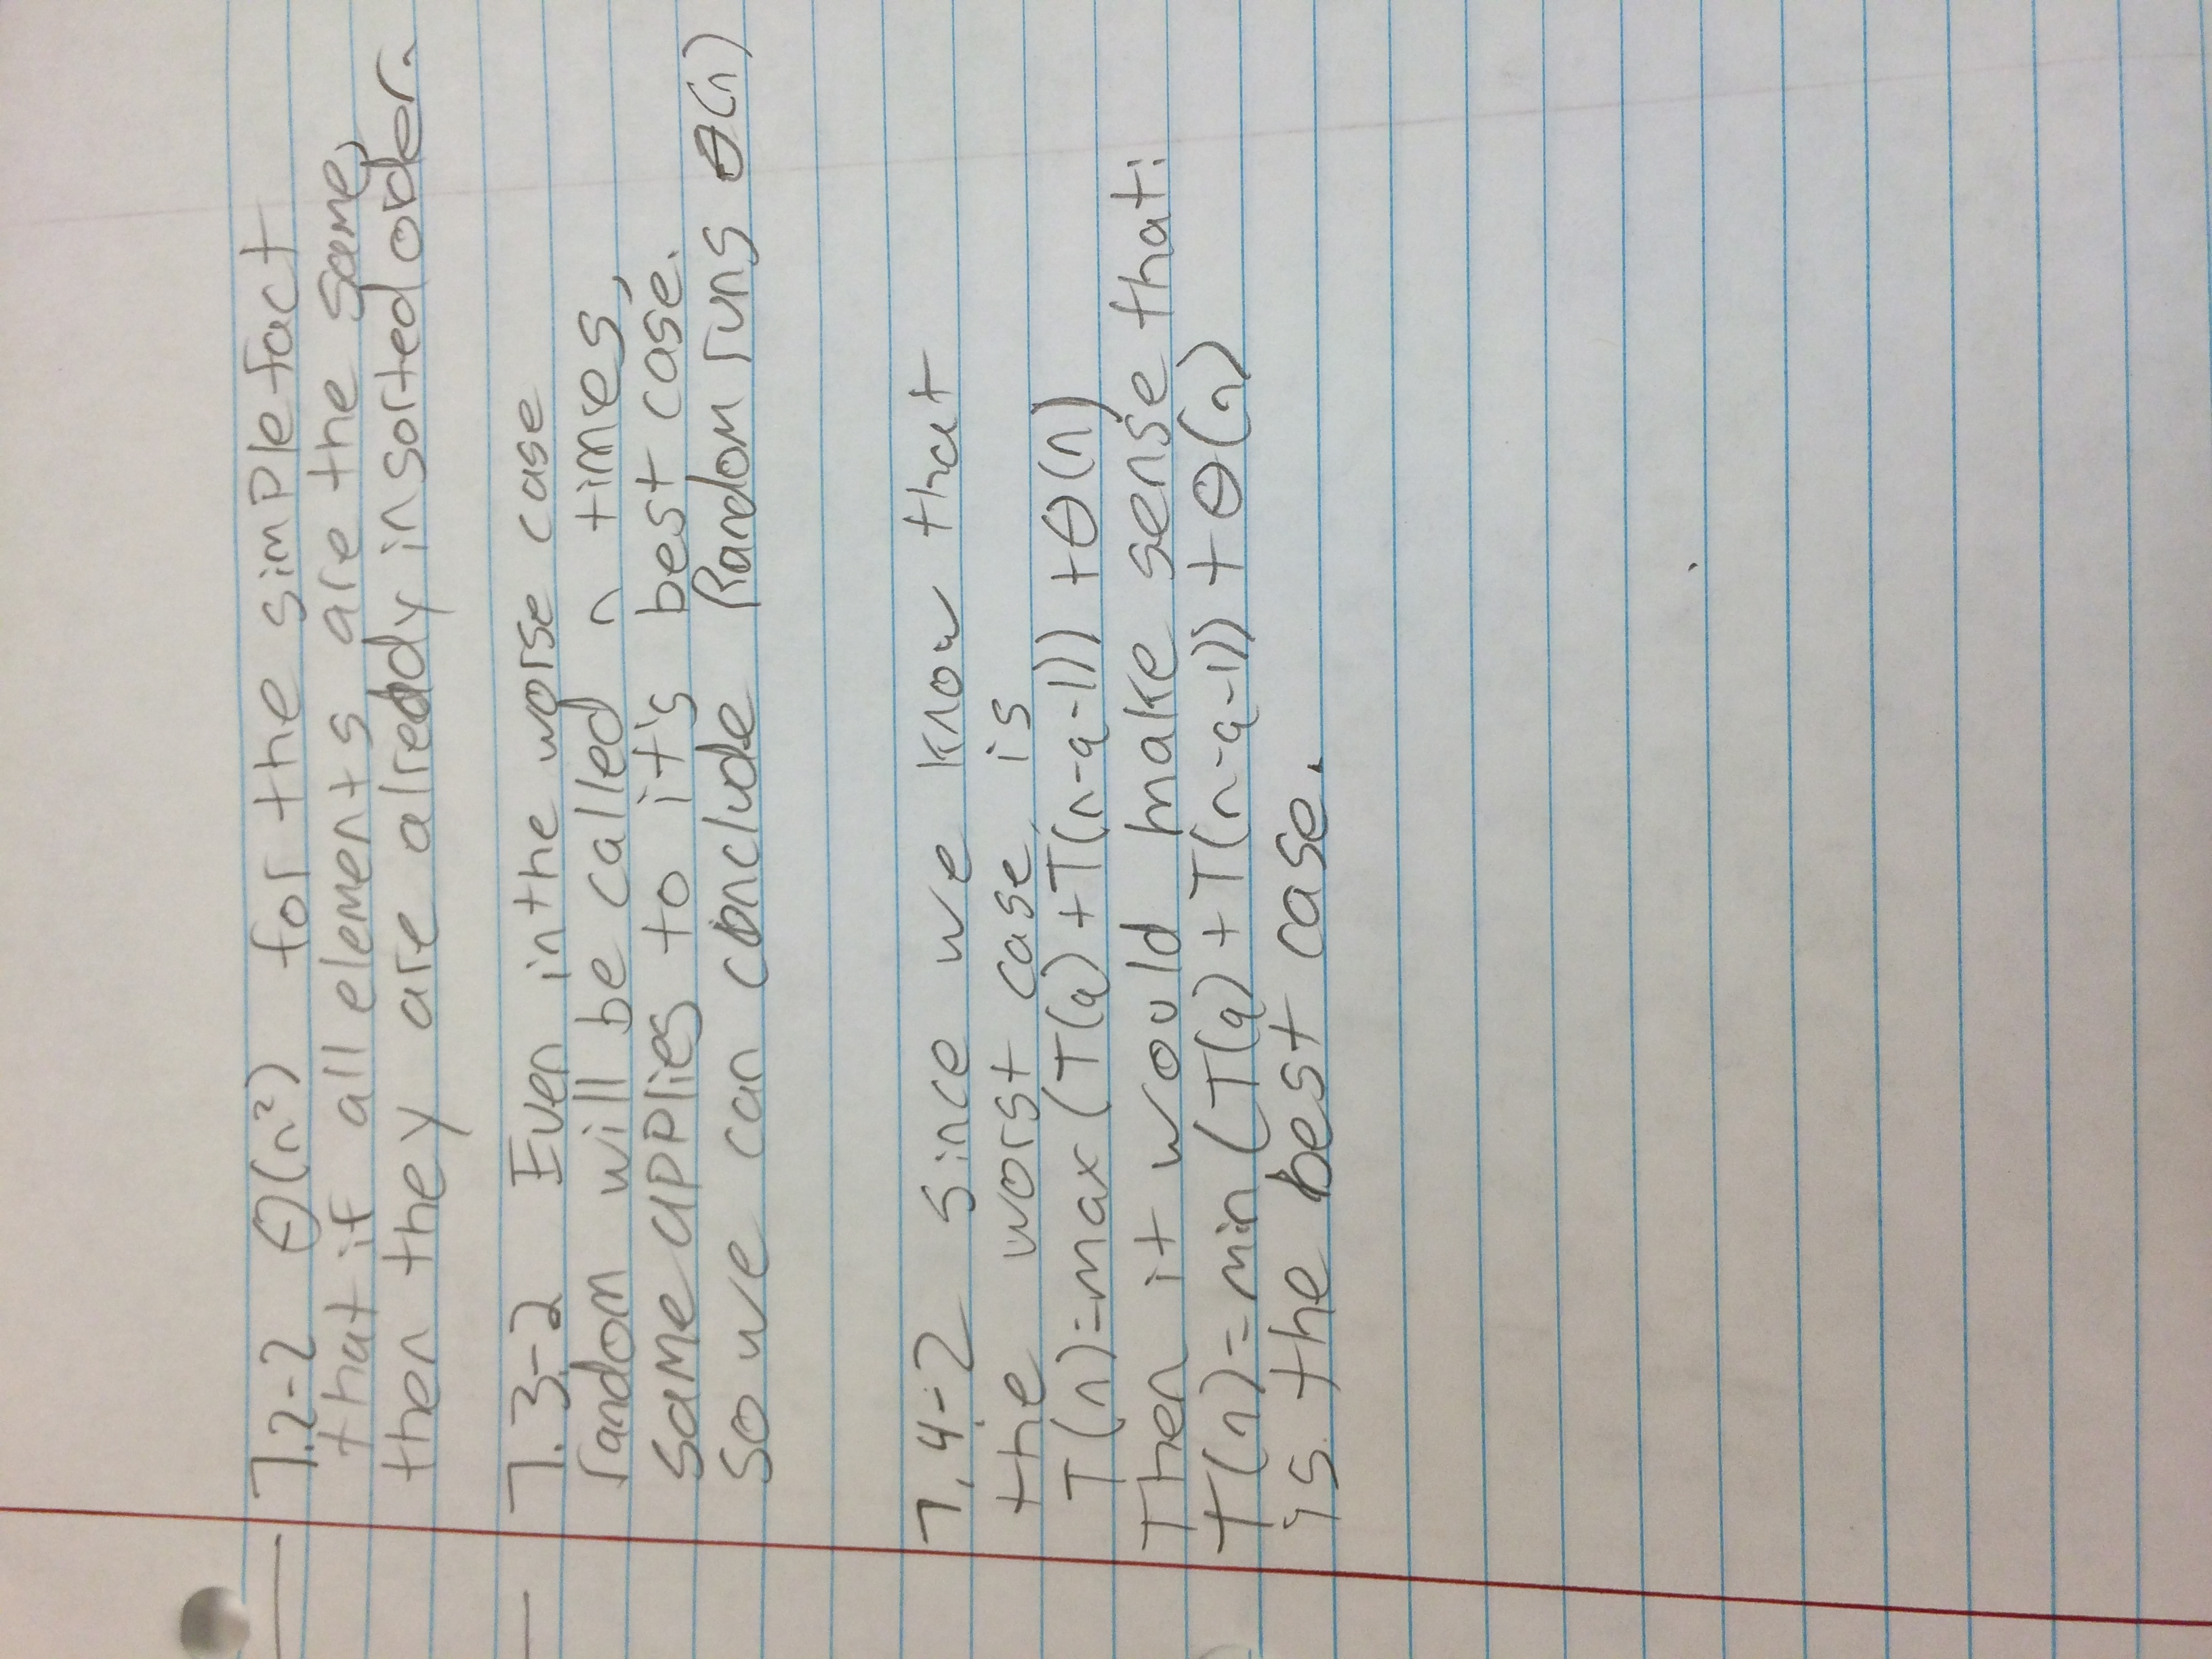 7.2-2 Θ(n²) for the simple fact
that if all elements are the same,
then they are already in sorted order.
7.3-2 Even in the worse case
random will be called n times,
same applies to it's best case.
so we can conclude Random runs Θ(n)
7.4-2 Since we know that
the worst case is
T(n)=max (T(q)+T(n-q-1)) +Θ(n)
Then it would make sense that:
T(n)=min (T(q)+T(n-q-1)) + Θ(n)
is the best case.